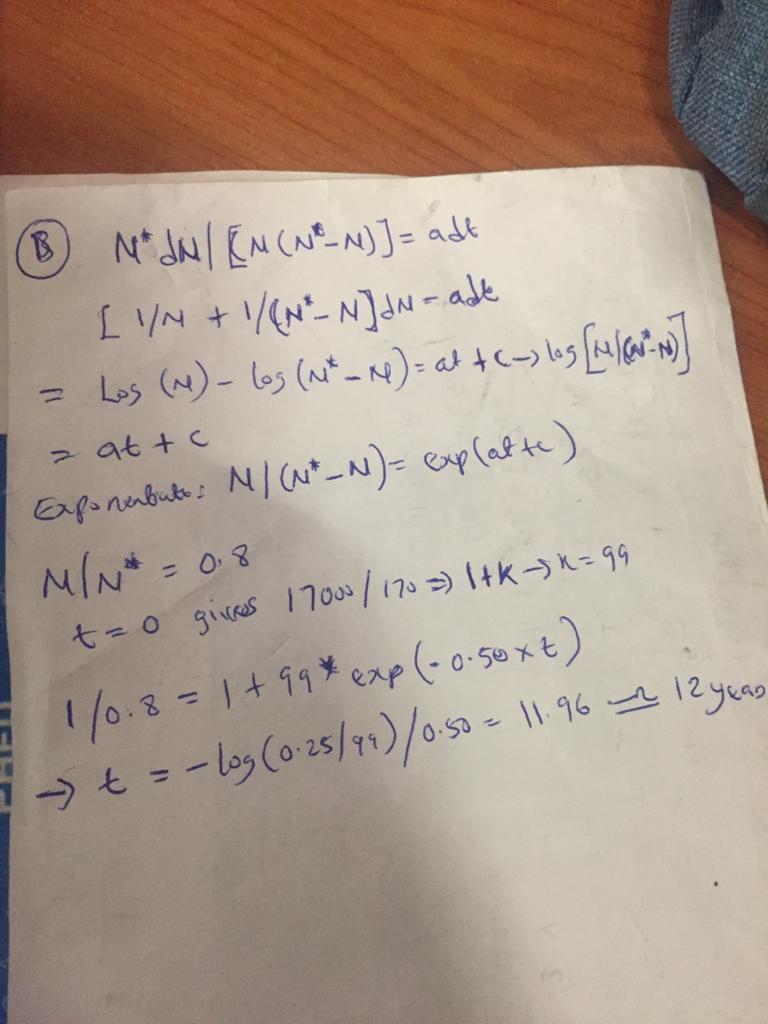 B N* dN / [N(N*-N)] = adt
[ 1/N + 1/(N*-N] dN = adt
= Log (N) - log (N* - N) = at + c -> log [N/(N*-N)]
= at + c
Exponentiate: N / (N* - N) = exp(at+c)
N/N* = 0.8
t = 0 gives 17000/170 => 1+K -> K = 99
1/0.8 = 1 + 99* exp (-0.50 x t)
-> t = -log(0.25/99)/0.50 = 11.96 ≃ 12 years